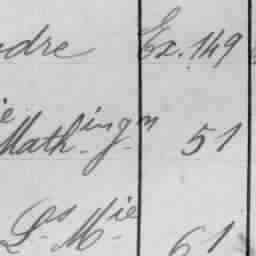 dre Ex. 149
ie
Math. ing m 51
Ls Mie 61